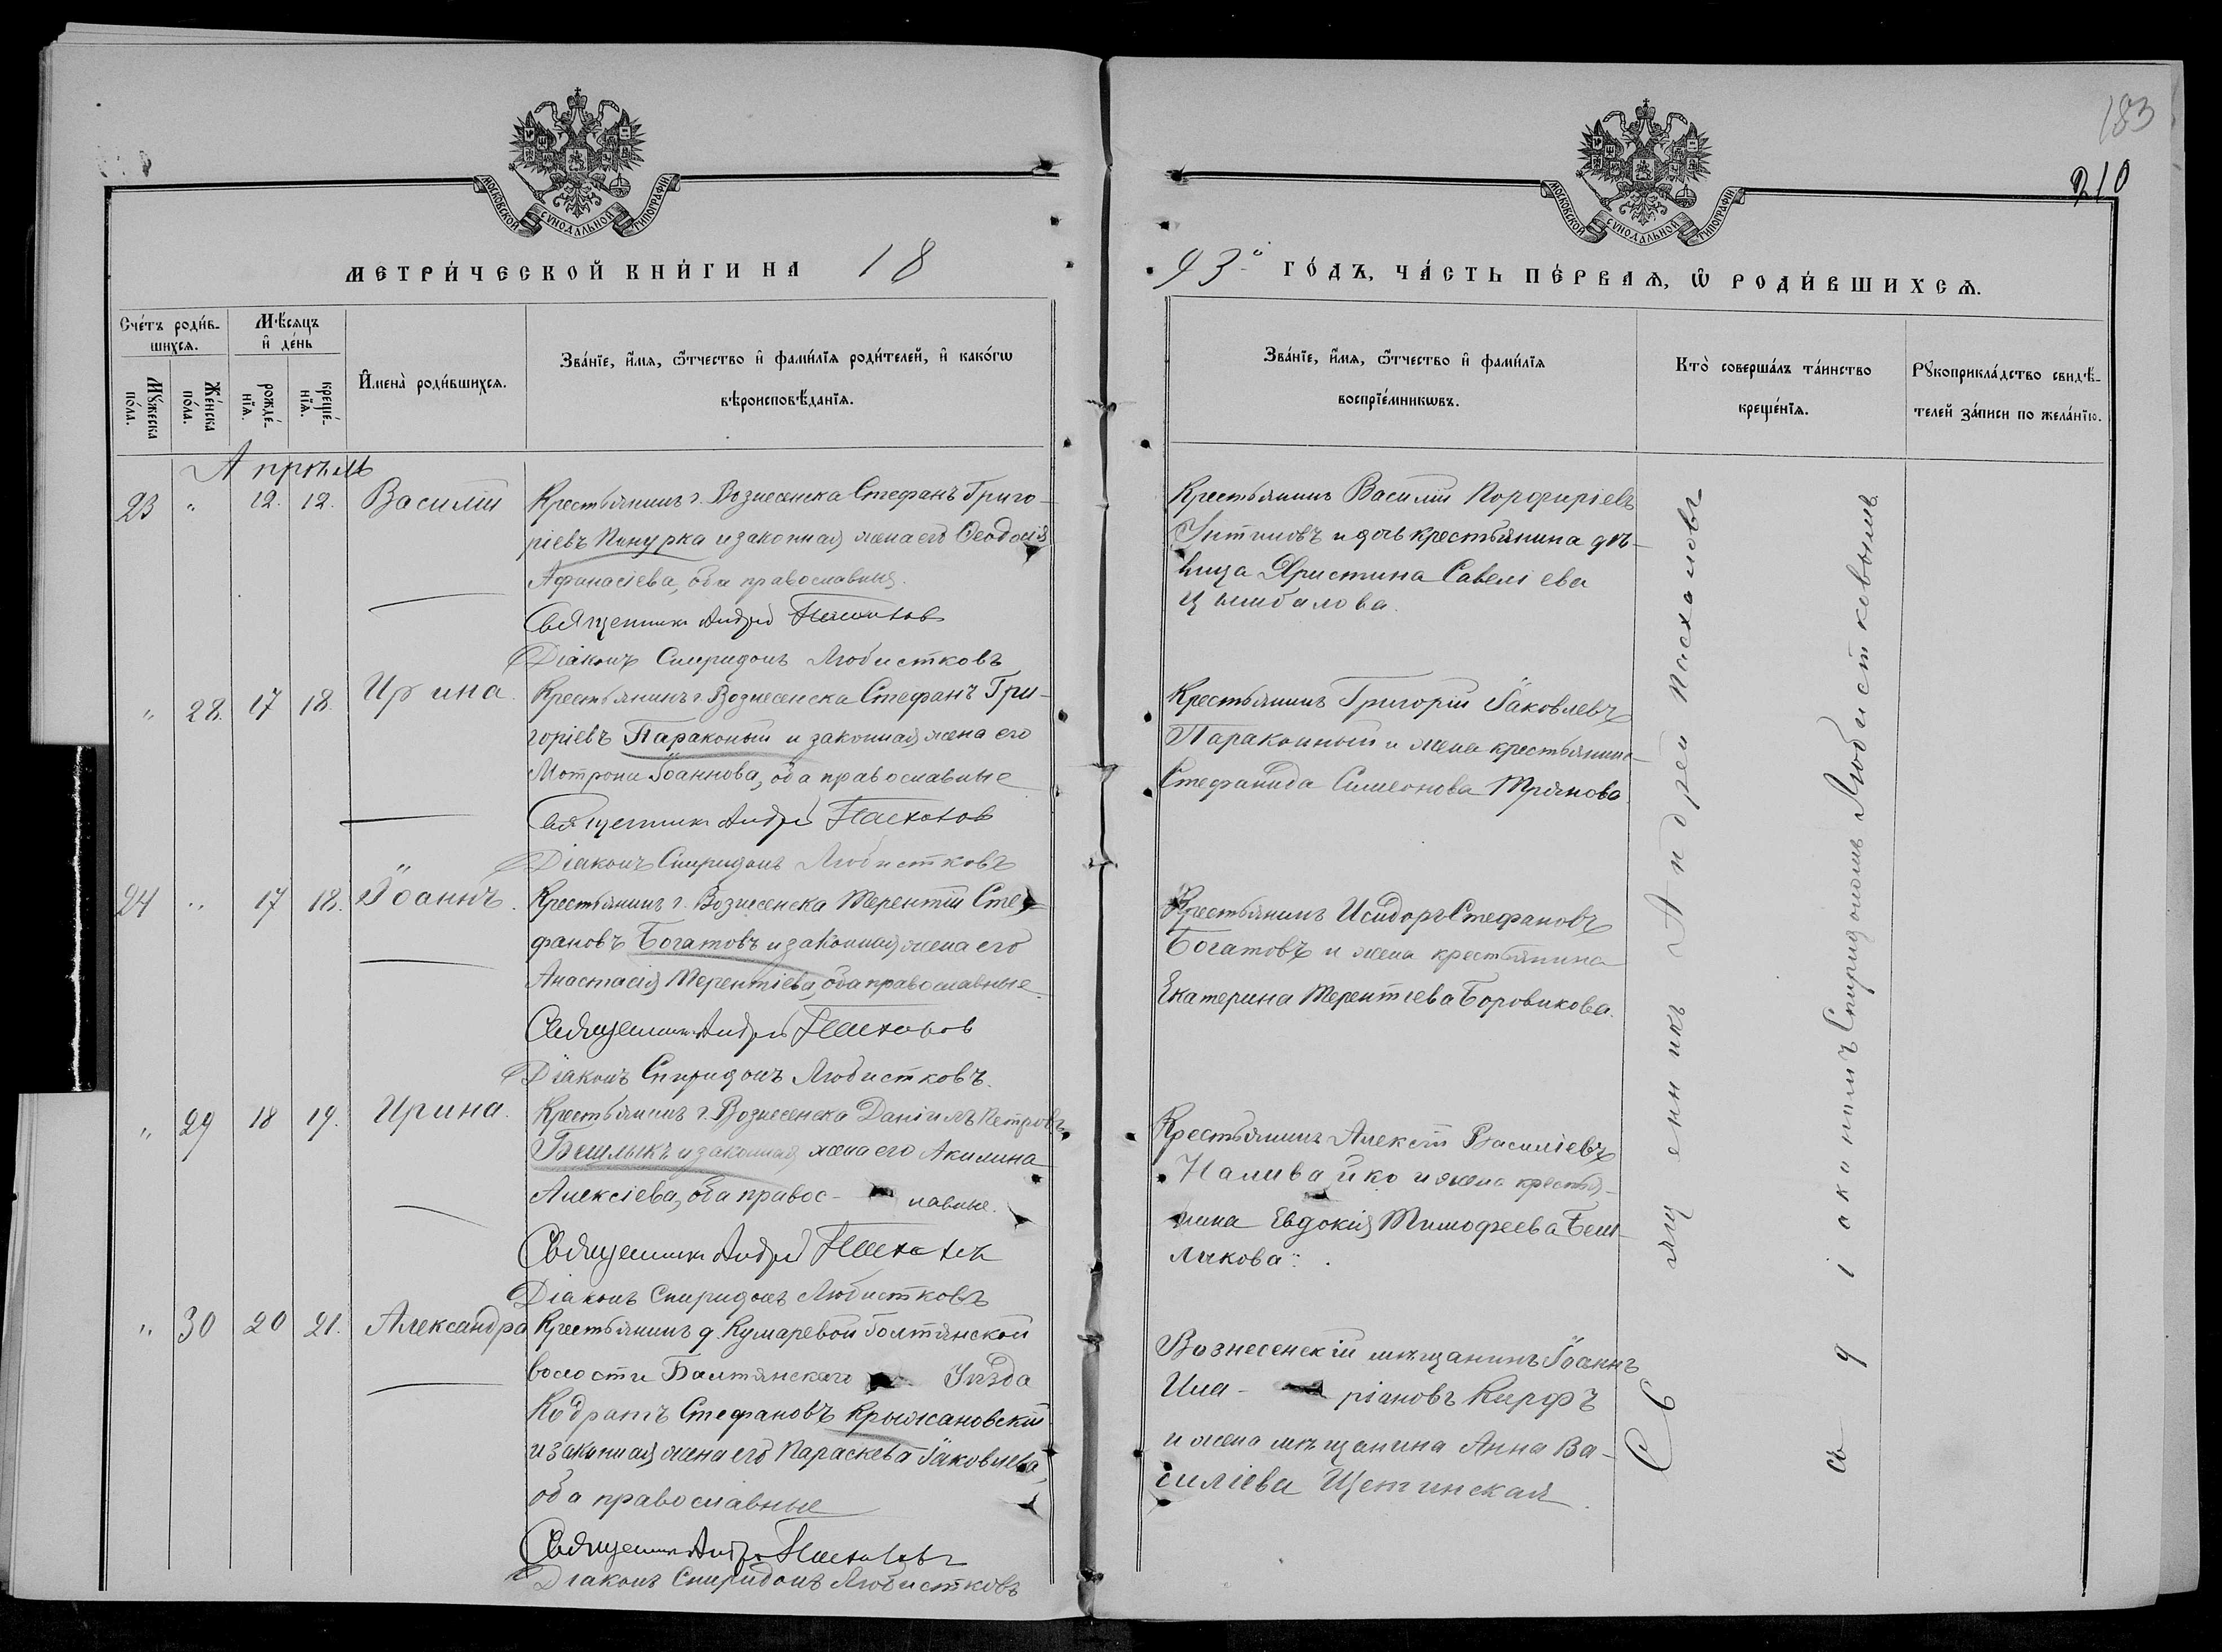 183
210
МОСКОВСКОЙ СѴНОДАЛЬНОЙ ТИПОГРАФІИ
МОСКОВСКОЙ СѴНОДАЛЬНОЙ ТИПОГРАФІИ
МЕТРИ́ЧЕСКОЙ КНИ́ГИ НА 18
93º ГО́ДЪ, ЧА́СТЬ ПЕ́РВАѦ, Ѡ҆ РОДИ́ВШИХСѦ.
Сче́тъ роди́в-
шихсѧ.
Мꙋ́жеска
по́ла.
Же́нска
по́ла.
Мѣ́сѧцъ
и҆ де́нь
рожде́-
нїѧ.
креще́-
нїѧ.
И҆мена̀ роди́вшихсѧ.
Зва́нїе, и҆́мѧ, ѻ҆́тчество и҆ фамилїѧ роди́телей, и҆ како́гѡ
вѣроисповѣ́данїѧ.
Зва́нїе, и҆́мѧ, ѻ҆́тчество и҆ фами́лїѧ
воспрїе́мникѡвъ.
Кто̀ соверша́лъ та́инство
креще́нїѧ.
Рꙋкоприкла́дство свидѣ́-
телей за́писи по жела́нїю.
Апрѣль
23 " 12. 12. Василій
Крестьянинъ г. Вознесенска Стефанъ Григо-
ріевъ Понурка и законная жена его Ѳеодосія
Афанасіева, оба православные.
Священникъ Андрей Пасхаловъ
Діаконъ Спиридонъ Любистковъ
Крестьянинъ Василій Порфиріевъ
и дочь крестьянина дѣ-
вица Христина Савеліева
Цымбалова.
" 28. 17 18. Ирина.
Крестьянинъ г. Вознесенска Стефанъ Гри-
горіевъ Параконый и законная жена его
Мотрона Іоаннова, оба православные
Священникъ Андрей Пасхаловъ
Діаконъ Спиридонъ Любистковъ
Крестьянинъ Григорій Іаковлевъ
Параконный и жена крестьянина
Стефанида Симеонова
24 " 17 18. Іоаннъ.
Крестьянинъ г. Вознесенска Терентій Сте-
фановъ Богатовъ и законная жена его
Анастасія Терентіева, оба православные.
Священникъ Андрей Пасхаловъ
Діаконъ Спиридонъ Любистковъ.
Крестьянинъ Исидоръ Стефановъ
Богатовъ и жена крестьянина
Екатерина Терентіева Боровикова.
" 29 18 19. Ирина.
Крестьянинъ г. Вознесенска Даніилъ Петровъ
Бешлыкъ и законная жена его Акилина
Алексіева, оба правос- лавные.
Священникъ Андрей Пасхаловъ
Діаконъ Спиридонъ Любистковъ
Крестьянинъ Алексій Василіевъ
Наливайко и жена крестья-
нина Евдокія Тимофеева Беш-
лыкова.
" 30 20 21. Александра
Крестьянинъ д. Кумаревой
волости Балтянскаго Уѣзда
Кодратъ Стефановъ Крыжановскій
и законная жена его Параскева Іаковлева,
оба православные
Священникъ Андрей Пасхаловъ
Діаконъ Спиридонъ Любистковъ
Вознесенскій мѣщанинъ Іоаннъ
Ила- ріановъ Кирфъ
и жена мѣщанина Анна Ва-
силіева Щетинская.
Священникъ Андрей Пасхаловъ
съ діакономъ Спиридономъ Любистковымъ